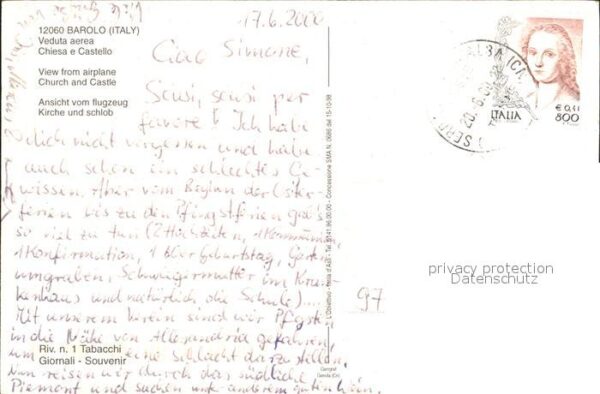 17.6.2000
12060 BAROLO (ITALY)
Veduta aerea
Chiesa e Castello
View from airplane
Church and Castle
Ansicht vom flugzeug
Kirche und schlob
Ciao Simone,
Scusi, scusi per
favore! Ich habe
dich nicht vergessen und habe
auch schon ein schlechtes Ge-
wissen. Aber vom Beginn der Oster-
ferien bis zu den Pfingstferien gab's
so viel zu tun (2 Hochzeiten, 1 Kommunion,
1 Konfirmation, 1 60er Geburtstag, Garten
umgraben, Schwiegermutter im Kran-
kenhaus und natürlich die Schule)...
Mit unserem Verein sind wir Pfingsten
in die Nähe von Alessandria gefahren,
um eine Schlacht darzustellen.
Nun reisen wir durch das südliche
Piemont und suchen unter anderem guten Wein.
Riv. n. 1 Tabacchi
Giornali - Souvenir
ITALIA
€ 0,41
800
97
privacy protection
Datenschutz